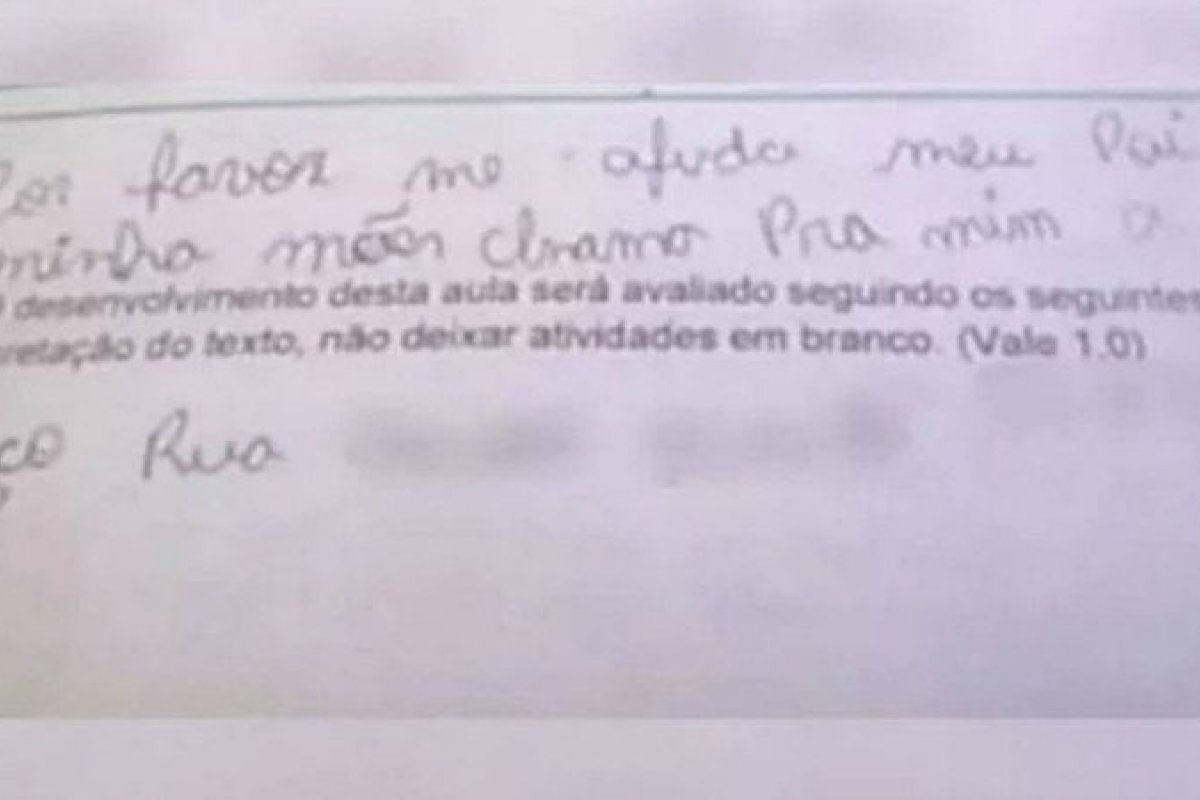 Por favor me ajuda meu Pai
minha mãer chramo Pra mim a
desenvolvimento desta aula será avaliado seguindo os seguintes
retação do texto, não deixar atividades em branco. (Vale 1.0)
ço Rua